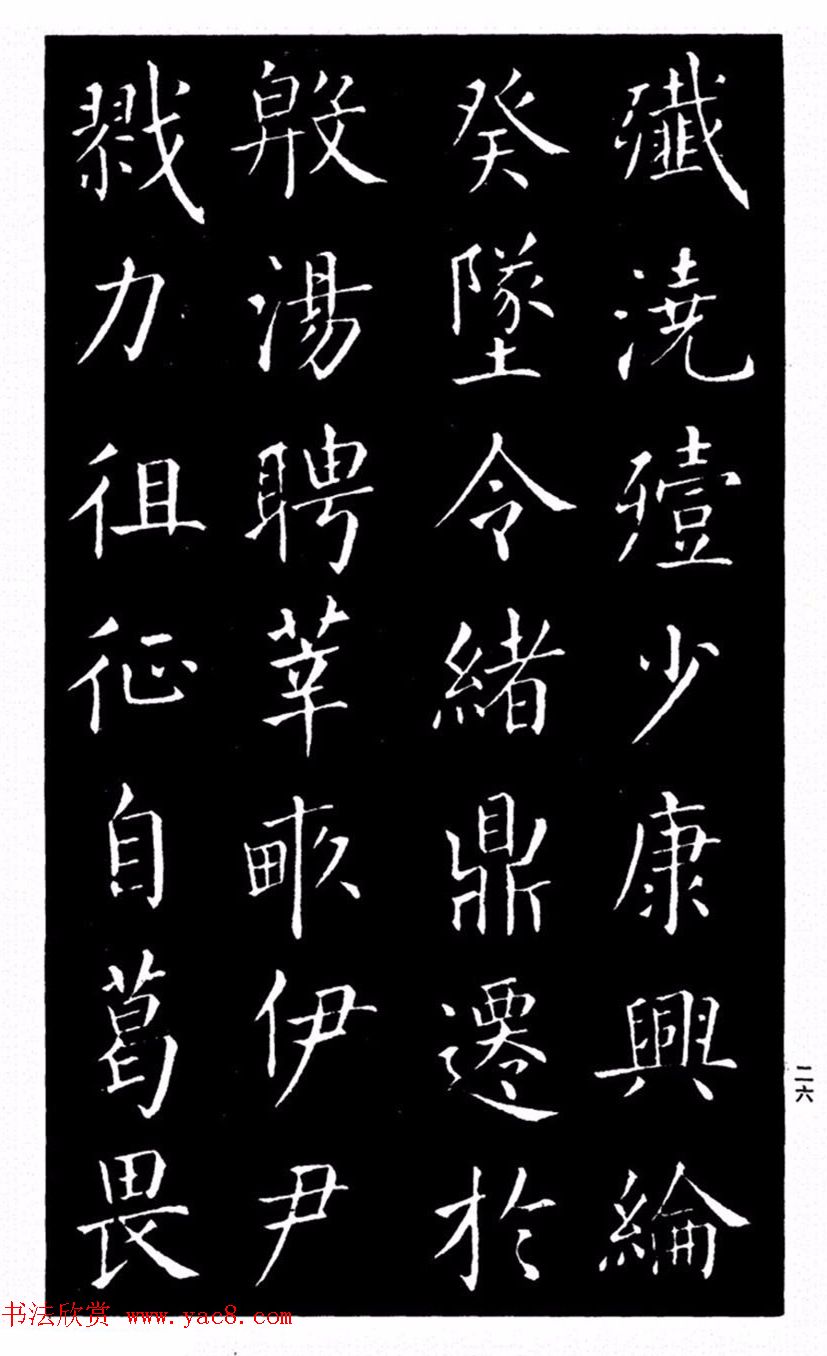 殲澆殪少康興綸
癸墜令緒鼎遷於
殷湯聘莘畡伊尹
戮力徂征自葛畏
二六
书法欣赏 www.yac8.com